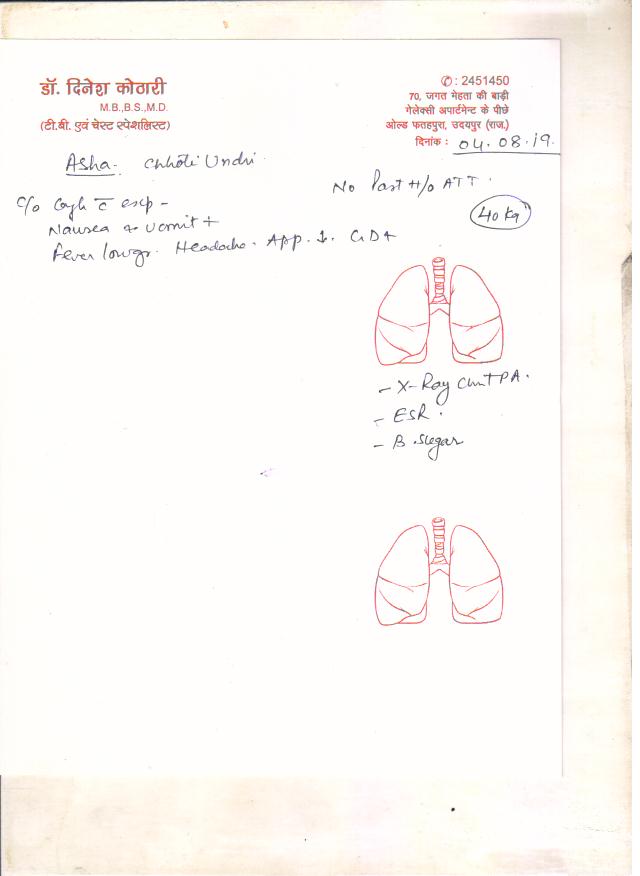 डॉ. दिनेश कोठारी
M.B.,B.S.,M.D.
(टी.बी. एवं चेस्ट स्पेशलिस्ट)
✆: 2451450
70, जगत मेहता की बाड़ी
गेलेक्सी अपार्टमेन्ट के पीछे
ओल्ड फतहपुरा, उदयपुर (राज.)
दिनांक : 04.08.19.
Asha. Chhoti Undri
No Past H/o ATT.
40 Kg
C/o Cough c̄ exp -
Nausea & vomit +
Fever lowgr. Headache. App. ↓. GD+
- X-Ray Chest PA.
- ESR.
- B. Sugar